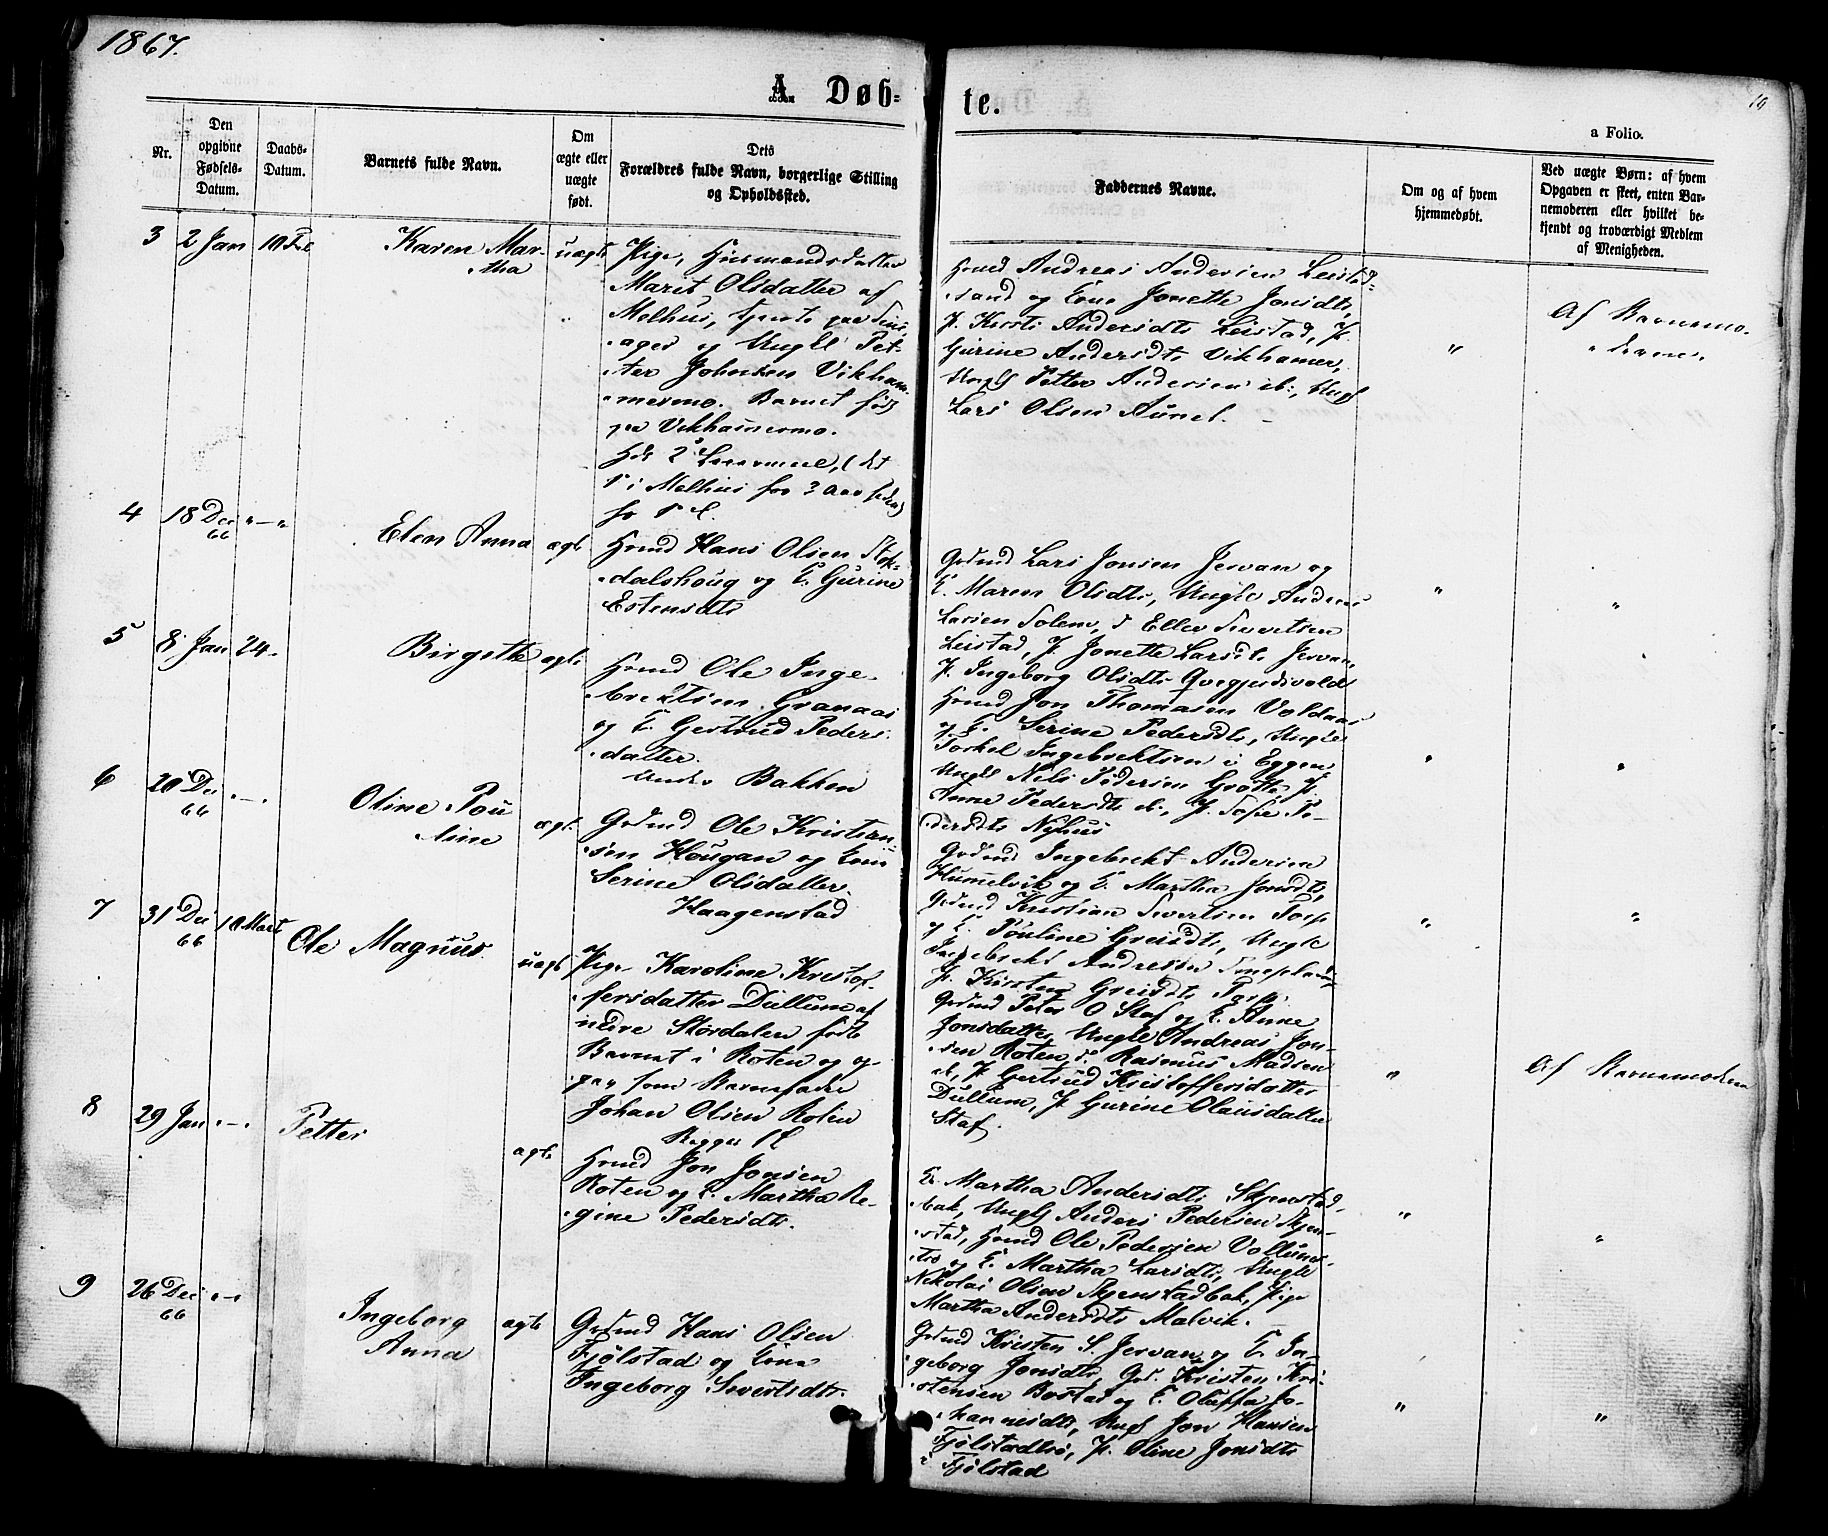 1867.
A. Døb-
te.
10
a Folio.
Nr.
Den
opgivne
Fødsels-
Datum.
Daabs-
Datum.
Barnets fulde Navn.
Om
ægte eller
uægte
født.
Dets
Forældres fulde Navn, borgerlige Stilling
og Opholdssted.
Faddernes Navne.
Om og af hvem
hjemmedøbt.
Ved uægte Børn: af hvem
Opgaven er skeet, enten Bar-
nemoderen eller hvilket be-
kjendt og troværdigt Medlem
af Menigheden.
3 2 Jan 10 Feb
Karen Mar-
tha
uægte
Pige, Huusmandsdatter
Marit Olsdatter af
Melhus,
og Ungk Pet-
ter Johnsen Vikham-
mermo. Barnet født
paa Vikhammermo.
hds 2d Leiermaal, (det
1ste i Melhus for 3 Aar siden)
Hmd Andreas Andersen Leistad-
sand og Kone Jonette Jonsdtr,
P. Kirsti Andersdtr Leistad, P.
Gurine Andersdtr Vikhamer,
Ungk Petter Andersen ib:, Ungk
Lars Olsen Aunet. -
"
Af Barnemo-
deren.
4 18 Dec "-"
66
Elen Anna
ægte
Hmd Hans Olsen Stok-
dalshoug og K. Gurine
Estensdtr
Grdmd Lars Jonsen Jervan og
K. Maren Olsdtr, Ungk Andreas
Larsen Solem, d Eller Sivertsen
Leistad, P. Jonette Larsdtr Jervan,
P. Ingeborg Olsdtr
"
"
5 8 Jan 24.
Birgitte
ægte
Hmd Ole Inge-
brektsen Granaas
og K. Gertrud Peders-
datter.
under Bakken
Hmd Jon Thomasen Voldaas
og K. Serine Pedersdtr, Ungk
Torkel Ingebrektsen i Eggen
Ungk Nils Pedersen Grotte, P.
Anne Pedersdtr ib., P. Sofie Pe-
dersdtr Nyhus
"
"
6 20 Dec "-"
66
Oline Pou-
line
ægt.
Grdmd Ole Kristian-
sen Hougan og Kone
Serine Olsdatter.
Haagenstad
Grdmd Ingebrekt Andersen
Hummelvik og K. Martha Jonsdtr,
Grdmd Kristian Sivertsen Torp
og K. Pouline Greisdtr, Ungk
Ingebrekt Andersen
P. Kirsten Greisdtr Torp.
"
"
7 31 Dec 10 Mart
66
Ole Magnus.
uægte
Pige Karoline Kristof-
fersdatter Dullum af
nedre Størdalen fødte
Barnet i Roten og op-
gav som Barnefader
Johan Olsen Roten
Begges 1 L
Grdmd Peter O Staf og K. Anne
Jonsdatter, Ungk Andreas Jon-
sen Roten, d. Rasmus Madsen
ib, P. Gertrud Kristoffersdatter
Dullum, P. Gurine Olausdatter
Staf.
"
Af Barnemoderen
8 29 Jan "-"
Petter
ægte
Hmd Jon Jonsen
Roten og K. Martha Re-
gine Pedersdtr.
K. Martha Andersdtr Skjenstad-
bak, Ungk Anders Pedersen Skjen-
stad, Hmd Ole Pedersen
og K. Martha Larsdtr, Ungk
Nikolai Olsen Skjenstadbak, Pige
Martha Andersdtr Malvik.
"
"
9 26 Dec "-"
66
Ingeborg
Anna
ægte
Grdmd Hans Olsen
Fjølstad og Kone
Ingeborg Sivertsdtr.
Grdmd Kristen S. Jervan og K. In-
geborg Jonsdtr, Grd. Kristen Kri-
stensen Bostad og K. Oluffa Jo-
hannesdtr, Ungk Jon Hansen
Fjølstad P. Oline Jonsdtr
i Fjølstad
"
"